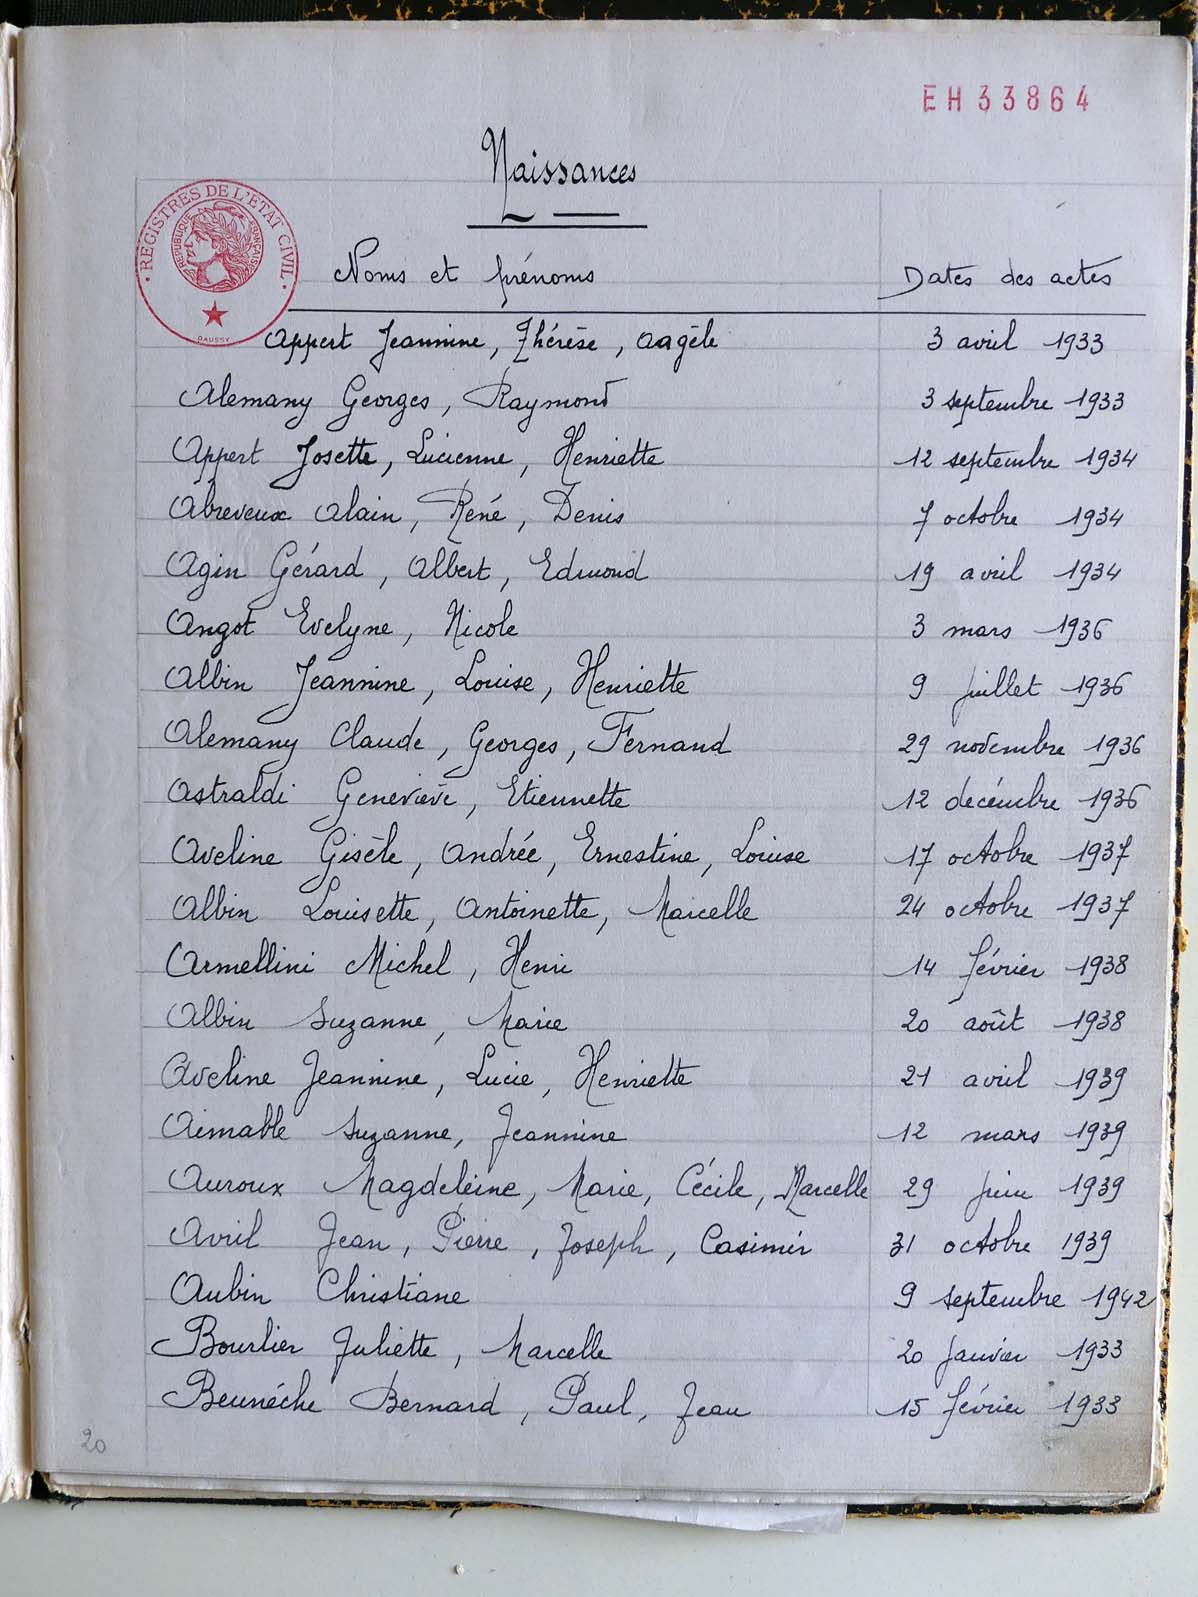 EH33864
Naissances
REGISTRES DE L'ETAT CIVIL
REPUBLIQUE FRANÇAISE
DAUSSY
Noms et prénoms Dates des actes
Appert Jeannine, Thérèse, Aagèle 3 avril 1933
Alemany Georges, Raymond 3 septembre 1933
Appert Josette, Lucienne, Henriette 12 septembre 1934
Abreveux Alain, René, Denis 7 octobre 1934
Agin Gérard, Albert, Edmond 19 avril 1934
Angot Evelyne, Nicole 3 mars 1936
Albin Jeannine, Louise, Henriette 9 juillet 1936
Alemany Claude, Georges, Fernand 29 novembre 1936
Astraldi Geneviève, Etiennette 12 decémbre 1936
Aveline Gisèle, Andrée, Ernestine, Louise 17 octobre 1937
Albin Louisette, Antoinette, Marcelle 24 octobre 1937
Armellini Michel, Henri 14 février 1938
Albin Suzanne, Marie 20 août 1938
Aveline Jeannine, Lucie, Henriette 21 avril 1939
Aimable Suzanne, Jeannine 12 mars 1939
Auroux Magdeleine, Marie, Cécile, Marcelle 29 juin 1939
Avril Jean, Pierre, Joseph, Casimir 31 octobre 1939
Aubin Christiane 9 septembre 1942
Bourlier Juliette, Marcelle 20 janvier 1933
Beunéche Bernard, Paul, Jean 15 février 1933
20